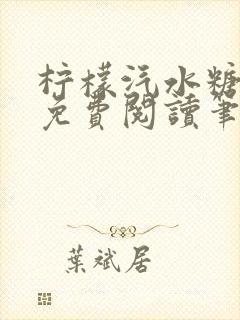 柠檬汽水糖
免費閱讀筆
葉斌居